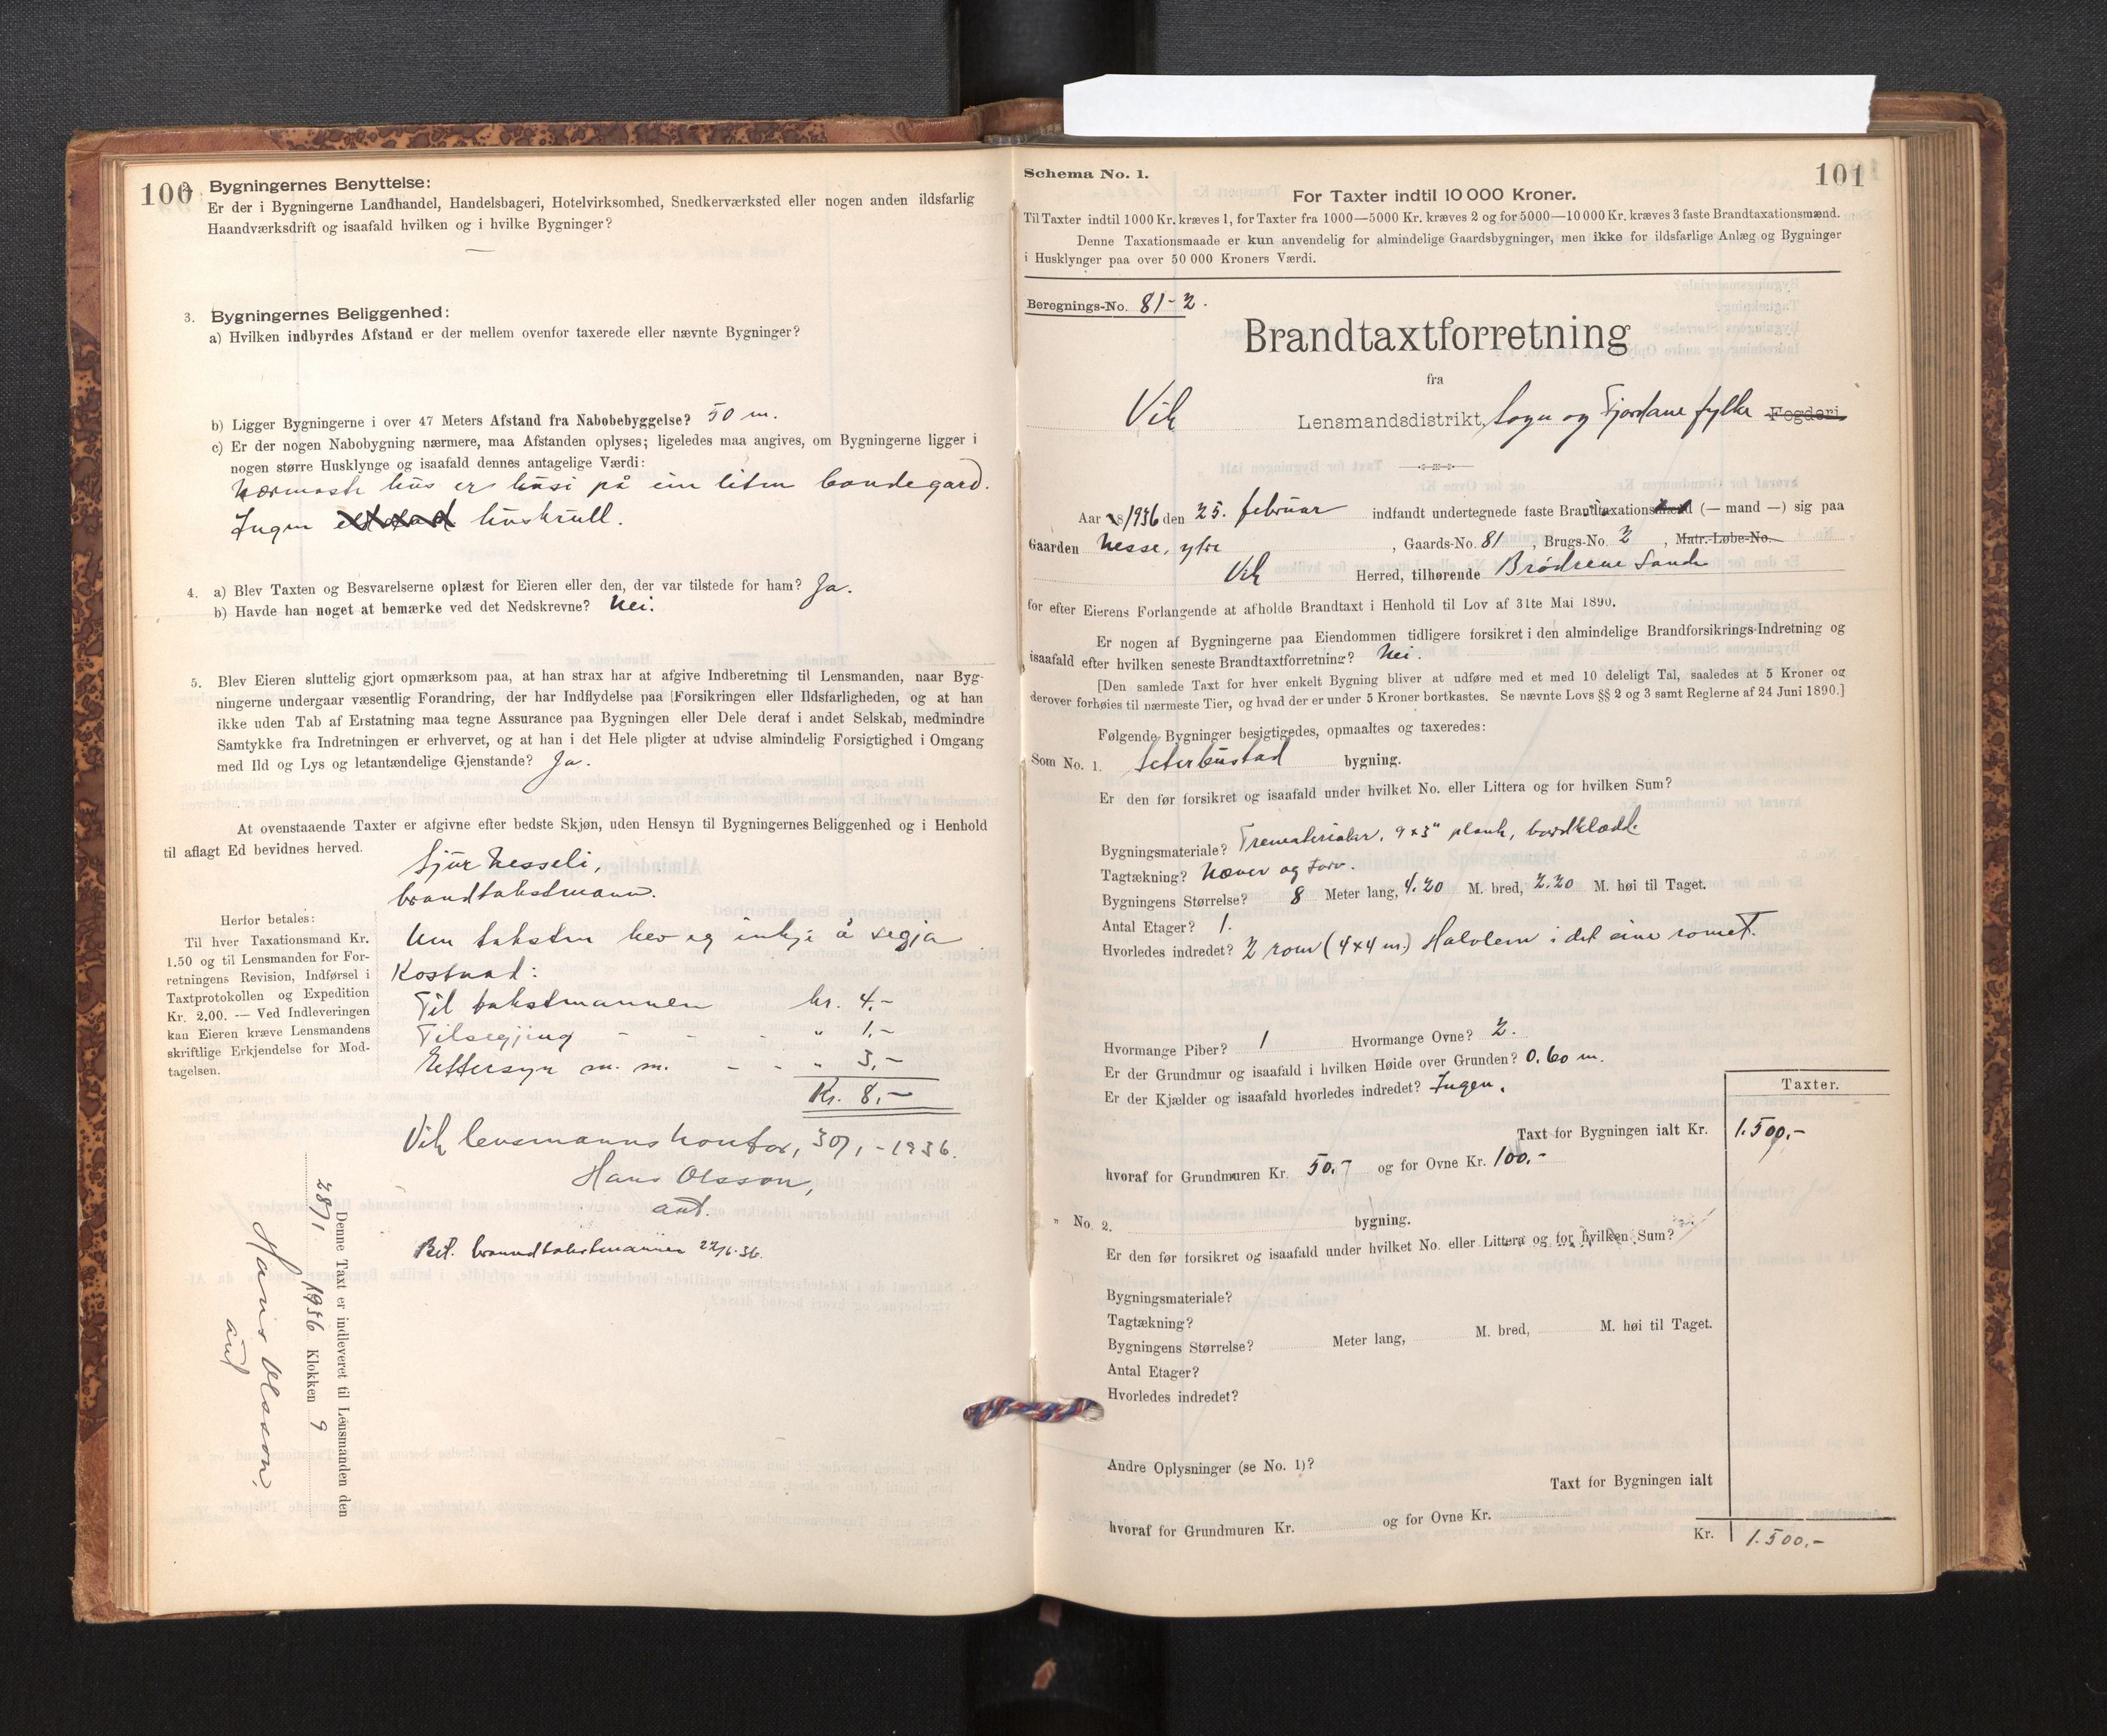 100
2. Bygningernes Benyttelse:
Er der i Bygningerne Landhandel, Handelsbageri, Hotelvirksomhed, Snedkerværksted eller nogen anden ildsfarlig
Haandværksdrift og isaafald hvilken og i hvilke Bygninger?
—
3. Bygningernes Beliggenhed:
a) Hvilken indbyrdes Afstand er der mellem ovenfor taxerede eller nævnte Bygninger?
b) Ligger Bygningerne i over 47 Meters Afstand fra Nabobebyggelse? 50 m.
c) Er der nogen Nabobygning nærmere, maa Afstanden oplyses; ligeledes maa angives, om Bygningerne ligger i
nogen større Husklynge og isaafald dennes antagelige Værdi:
Nærmaste hus er husi på ein liten bondegard.
Ingen huskrull.
4. a) Blev Taxten og Besvarelserne oplæst for Eieren eller den, der var tilstede for ham? Ja.
b) Havde han noget at bemærke ved det Nedskrevne? Nei.
5. Blev Eieren sluttelig gjort opmærksom paa, at han strax har at afgive Indberetning til Lensmanden, naar Byg-
ningerne undergaar væsentlig Forandring, der har Indflydelse paa Forsikringen eller Ildsfarligheden, og at han
ikke uden Tab af Erstatning maa tegne Assurance paa Bygningen eller Dele deraf i andet Selskab, medmindre
Samtykke fra Indretningen er erhvervet, og at han i det Hele pligter at udvise almindelig Forsigtighed i Omgang
med Ild og Lys og letantændelige Gjenstande? Ja.
At ovenstaaende Taxter er afgivne efter bedste Skjøn, uden Hensyn til Bygningernes Beliggenhed og i Henhold
til aflagt Ed bevidnes herved.
Sjur Nesseli,
brandtakstmann.
Herfor betales:
Til hver Taxationsmand Kr.
1.50 og til Lensmanden for For-
retningens Revision, Indførsel i
Taxtprotokollen og Expedition
Kr. 2.00. — Ved Indleveringen
kan Eieren kræve Lensmandens
skriftlige Erkjendelse for Mod-
tagelsen.
Um taksten hev eg inkje å segja
Kostnad:
Til takstmannen kr. 4.-
Tilsegjing - - - " 1.-
Ettersyn m. m. - - " 3.-
Kr. 8.-
Vik lensmannskontor, 30/1-1936.
Hans Olsson,
aut.
Bet. brandtakstmannen 27/6-36.
Denne Taxt er indleveret til Lensmanden den
28/1 1936 Klokken 9
Hans Olsson,
aut
101
Schema No. 1.
For Taxter indtil 10 000 Kroner.
Til Taxter indtil 1000 Kr. kræves 1, for Taxter fra 1000—5000 Kr. kræves 2 og for 5000—10 000 Kr. kræves 3 faste Brandtaxationsmænd.
Denne Taxationsmaade er kun anvendelig for almindelige Gaardsbygninger, men ikke for ildsfarlige Anlæg og Bygninger
i Husklynger paa over 50 000 Kroners Værdi.
Beregnings-No. 81-2.
Brandtaxtforretning
fra
Vik Lensmandsdistrikt, Sogn og Fjordane fylke Fogderi
Aar 18/1936 den 25. februar indfandt undertegnede faste Brandtaxationsmænd (— mand —) sig paa
Gaarden Nesse, ytre, Gaards-No. 81, Brugs-No. 2, Matr.-Løbe-No.
Vik Herred, tilhørende Brødrene Sande
for efter Eierens Forlangende at afholde Brandtaxt i Henhold til Lov af 31te Mai 1890.
Er nogen af Bygningerne paa Eiendommen tidligere forsikret i den almindelige Brandforsikrings-Indretning og
isaafald efter hvilken seneste Brandtaxtforretning? Nei.
[Den samlede Taxt for hver enkelt Bygning bliver at udføre med et med 10 deleligt Tal, saaledes at 5 Kroner og
derover forhøies til nærmeste Tier, og hvad der er under 5 Kroner bortkastes. Se nævnte Lovs §§ 2 og 3 samt Reglerne af 24 Juni 1890.]
Følgende Bygninger besigtigedes, opmaaltes og taxeredes:
Som No. 1. Seterbustad bygning.
Er den før forsikret og isaafald under hvilket No. eller Littera og for hvilken Sum?
Bygningsmateriale? Trematerialer, 9x3" plank, bordklædd.
Tagtækning? Næver og torv.
Bygningens Størrelse? 8 Meter lang, 4.20 M. bred, 2.20 M. høi til Taget.
Antal Etager? 1.
Hvorledes indredet? 2 rom (4x4 m.) Halvlem i det eine romet.
Hvormange Piber? 1 Hvormange Ovne? 2.
Er der Grundmur og isaafald i hvilken Høide over Grunden? 0.60 m.
Er der Kjælder og isaafald hvorledes indredet? Ingen.
Taxter.
Taxt for Bygningen ialt Kr. 1.500,-
hvoraf for Grundmuren Kr. 50.- og for Ovne Kr. 100.-
" No. 2. bygning.
Er den før forsikret og isaafald under hvilket No. eller Littera og for hvilken Sum?
Bygningsmateriale?
Tagtækning?
Bygningens Størrelse? Meter lang, M. bred, M. høi til Taget.
Antal Etager?
Hvorledes indredet?
Andre Oplysninger (se No. 1)?
Taxt for Bygningen ialt
hvoraf for Grundmuren Kr. og for Ovne Kr.
Kr. 1.500.-